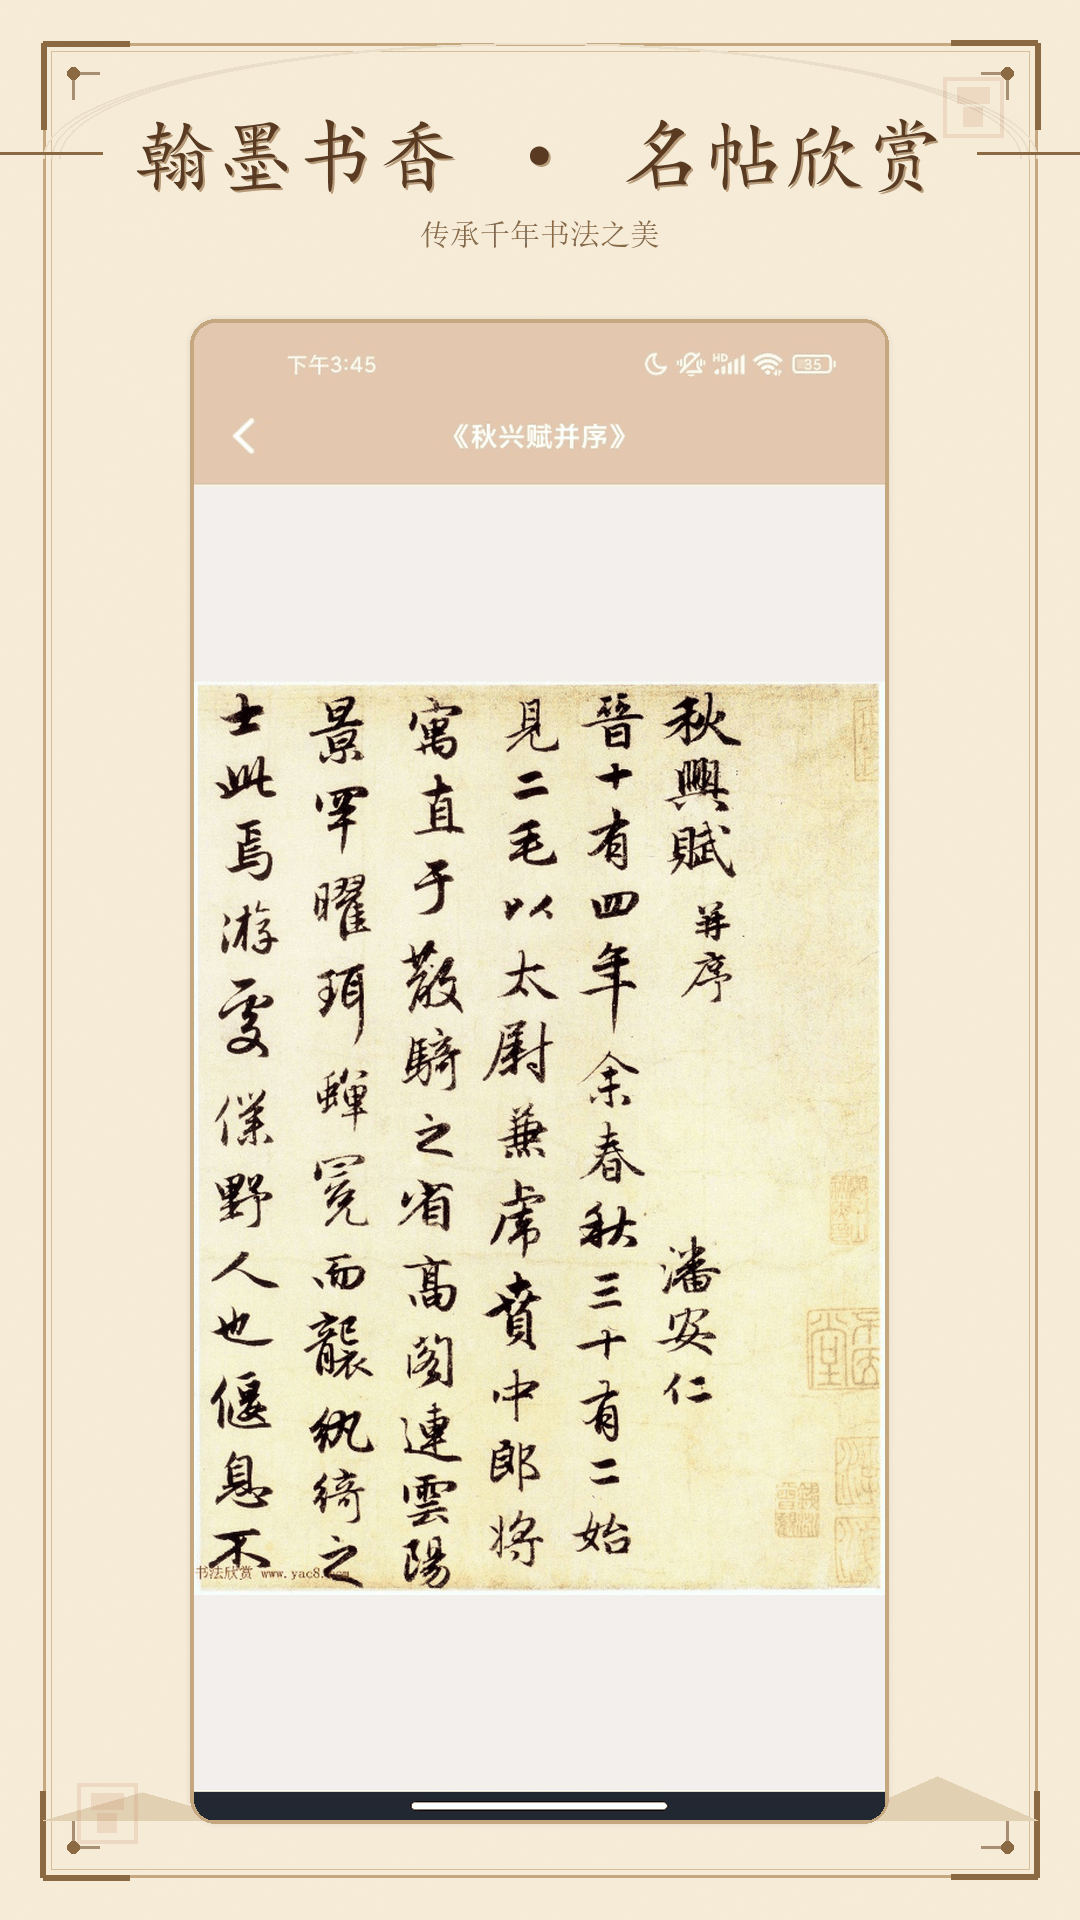 翰墨书香 • 名帖欣赏
传承千年书法之美
下午3:45
HD
35
《秋兴赋并序》
秋興賦 并序 潘安仁
晉十有四年余春秋三十有二始
見二毛以太尉兼虎賁中郎将
寓直于散騎之省高閣連雲陽
景罕曜珥蟬冕而襲紈綺之
士此焉游處僕野人也偃息不
书法欣赏 www.yac8.com